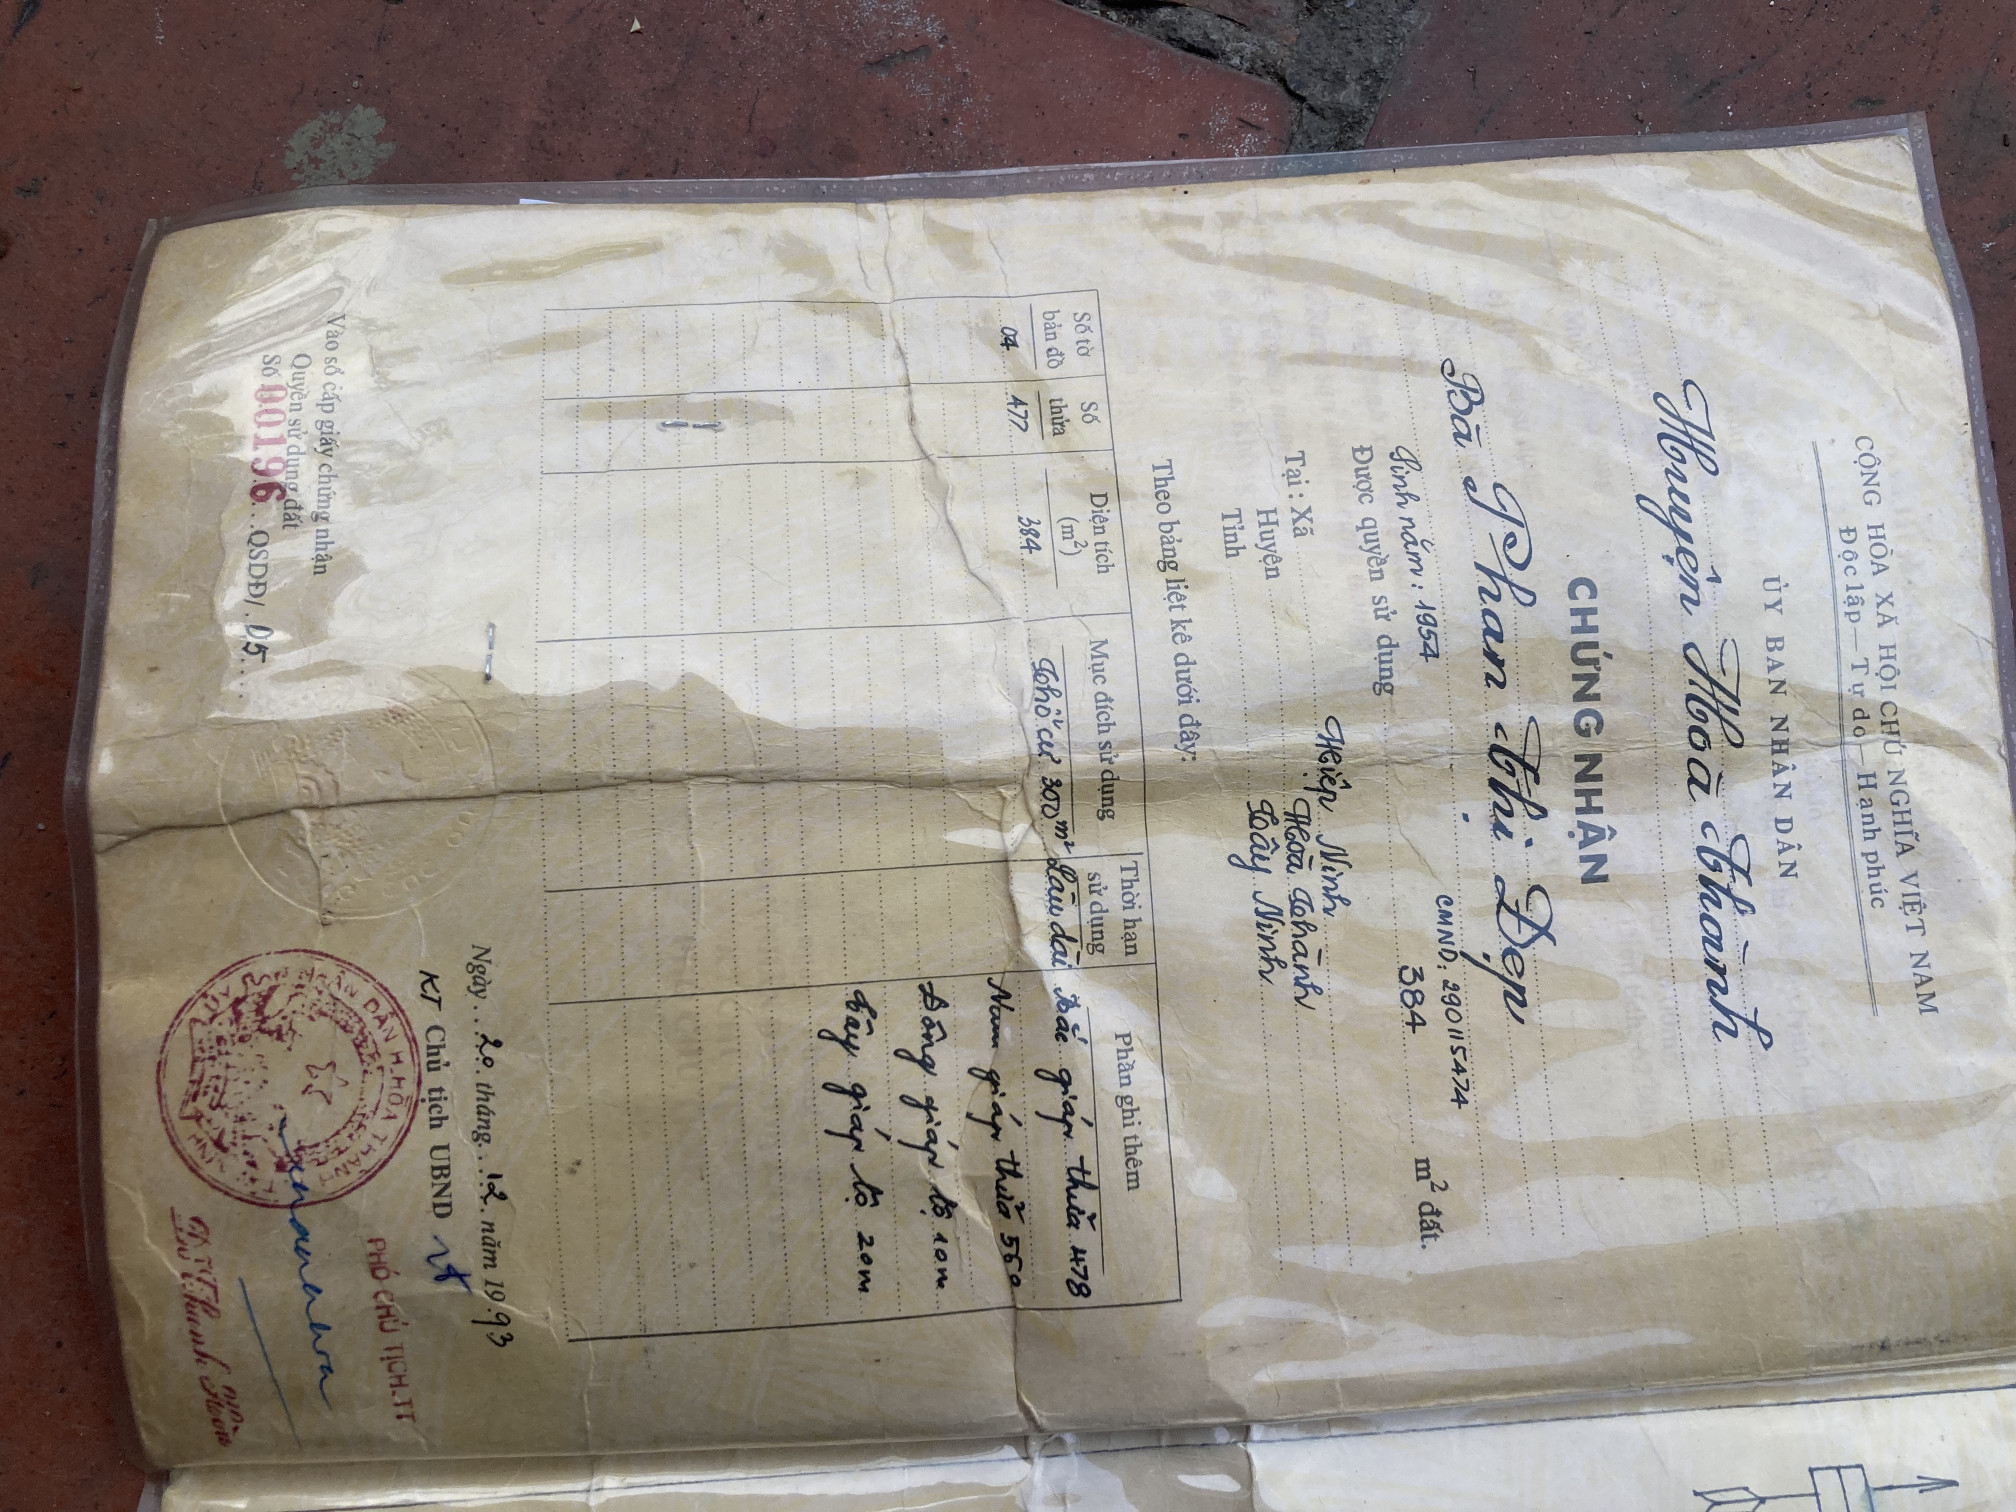 CỘNG HÒA XÃ HỘI CHỦ NGHĨA VIỆT NAM
Độc lập — Tự do — Hạnh phúc
ỦY BAN NHÂN DÂN
Huyện Hoà Thành
CHỨNG NHẬN
Bà Phan Thị Đẹp
Sinh năm: 1954 CMND: 290115474
Được quyền sử dụng 384 m² đất.
Tại: Xã Hiệp Ninh
Huyện Hoà Thành
Tỉnh Tây Ninh
Theo bảng liệt kê dưới đây:
Số tờ bản đồ Số thửa Diện tích (m²) Mục đích sử dụng Thời hạn sử dụng Phần ghi thêm
04 477 384 Thổ cư 300m² Lâu dài Bắc giáp thửa 478
Nam giáp thửa 560
Đông giáp lộ 10m
Tây giáp lộ 20m
Ngày 20 tháng 12 năm 1993
KT Chủ tịch UBND
PHÓ CHỦ TỊCH.TT
Vào sổ cấp giấy chứng nhận
Quyền sử dụng đất
Số 00196 QSDĐ/ 05